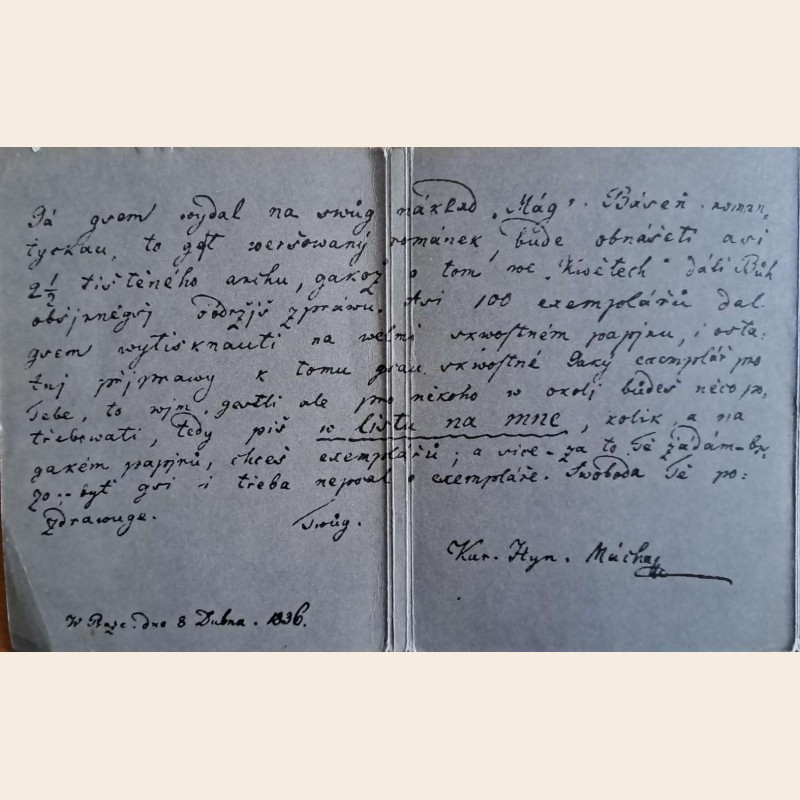 Já gsem wydal na swůg náklad „Mág". Báseň roman,
tyckau, to gest weršowaný románek, bude obnášeti asi
2 1/2 tištěného archu, gakož o tom we „Kwětech" dáli Bůh
obšjrněgšj obdržjš zpráwu. Asi 100 exemplářů dal
gsem wytisknauti na welmi skwostném papjru, i osta:
tnj přjprawy k tomu gsau skwostné. Gaký exemplář pro
Tebe, to wjm, gestli ale pro někoho w okolj budeš něco po,
třebowati, tedy piš w listu na mne, kolik, a na
gakém papjru, chceš exemplářů; a wice – za to Tě žádám – br,
zo :- byť gsi i třeba nepsal o exempláře. Swoboda Tě po:
zdrawuge. Twůg.
Kar. Hyn. Mácha
W Praze. dne 8 Dubna. 1836.